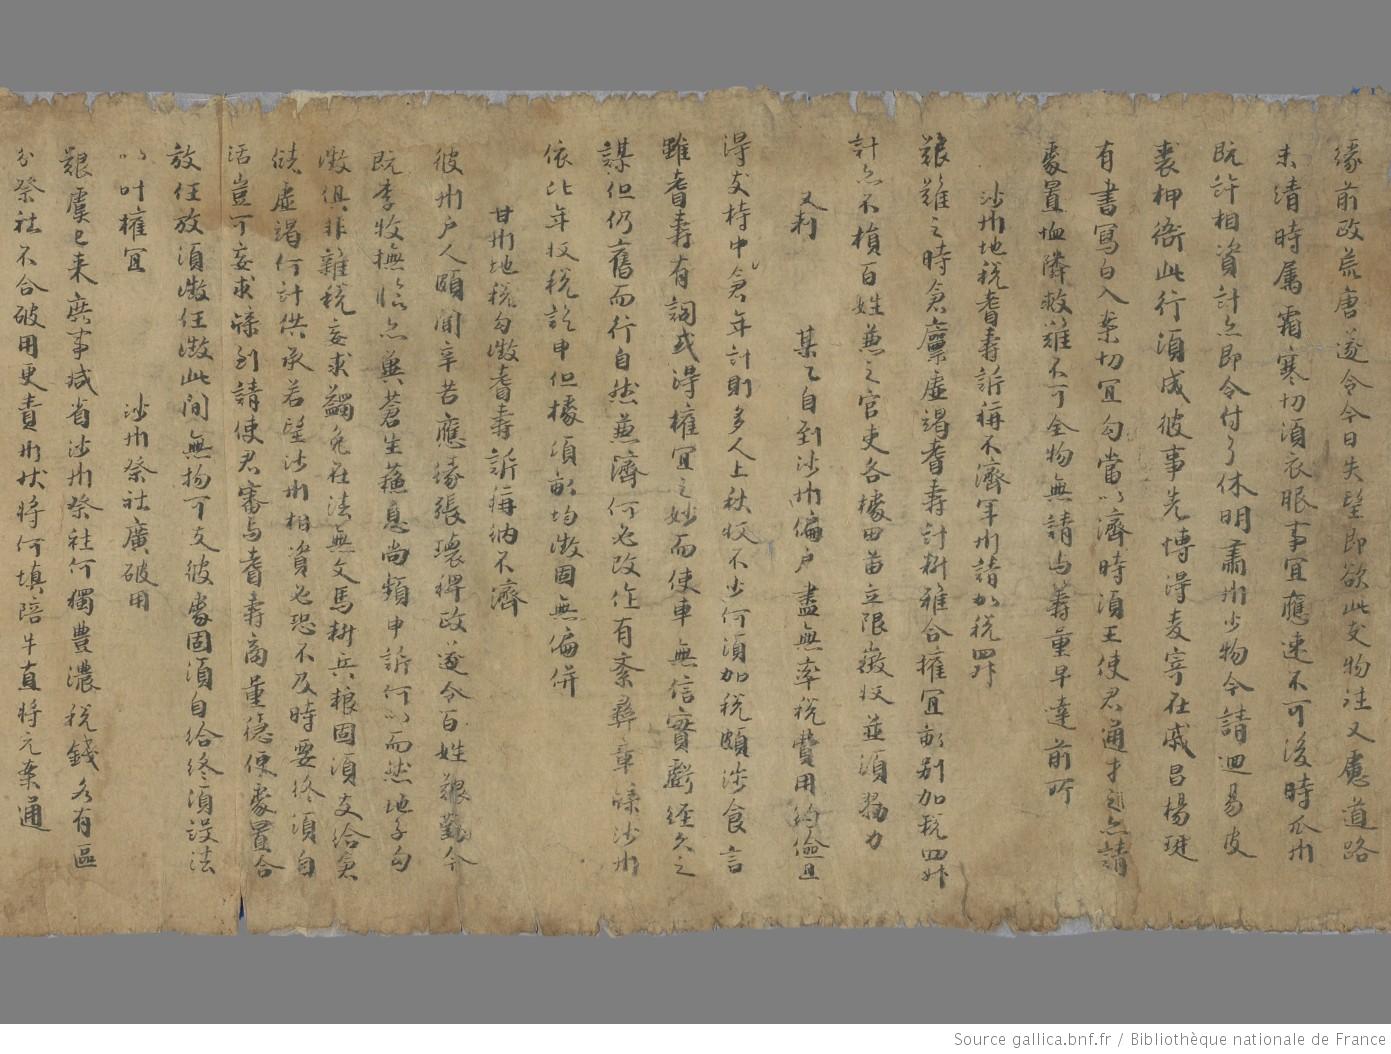 緣前政荒唐遂令今日失望即欲此支物往又慮道路
未清時属霜寒切須衣服事宜應速不可後時瓜州
既許相資計亦即令付了休明肅州少物令請迴易皮
裘押衙此行須成彼事先博得麦寄在戚昌楊珽
有書寫白入案切宜勾當以濟時須王使君通才亦請
處置恤隣救難不可全物無請与籌量早達前所
沙州地税耆壽訴稱不濟軍州請加税四升
艱難之時倉廩虚竭耆壽計料雅合權宜畝别加税四升
計亦不損百姓兼之官吏各據田苗立限徴收並須努力
又判 某乙自到沙州偏户盡無率税費用約儉且
得支持中倉年計則多人上秋收不少何須加税頗涉食言
雖耆壽有詞或得權宜之妙而使車無信實虧經久之
謀但仍舊而行自然兼濟何必改作有紊彝章牒沙州
依比年收税訖申但據頃畝均徴固無偏併
甘州地税勾徴耆壽訴稱納不濟
彼州户人頗聞辛苦應緣張瓌稗政遂令百姓艱勤今
既李牧撫臨亦與蒼生蘇息尚頻申訴何以而然地子勾
徴俱非雜税妄求蠲免在法無文馬料兵粮固須支給倉
儲虚竭何計供承若望沙州相資必恐不及時要終須自
活豈可妄求牒到請使君審与耆壽商量穩便處置合
放任放須徴任徴此間無物可支彼處固須自給終須設法
以叶權宜
沙州祭社廣破用
艱虞已来庶事咸省沙州祭社何獨豊濃税錢各有區
分祭社不合破用更責州状將何填陪牛直將元案通